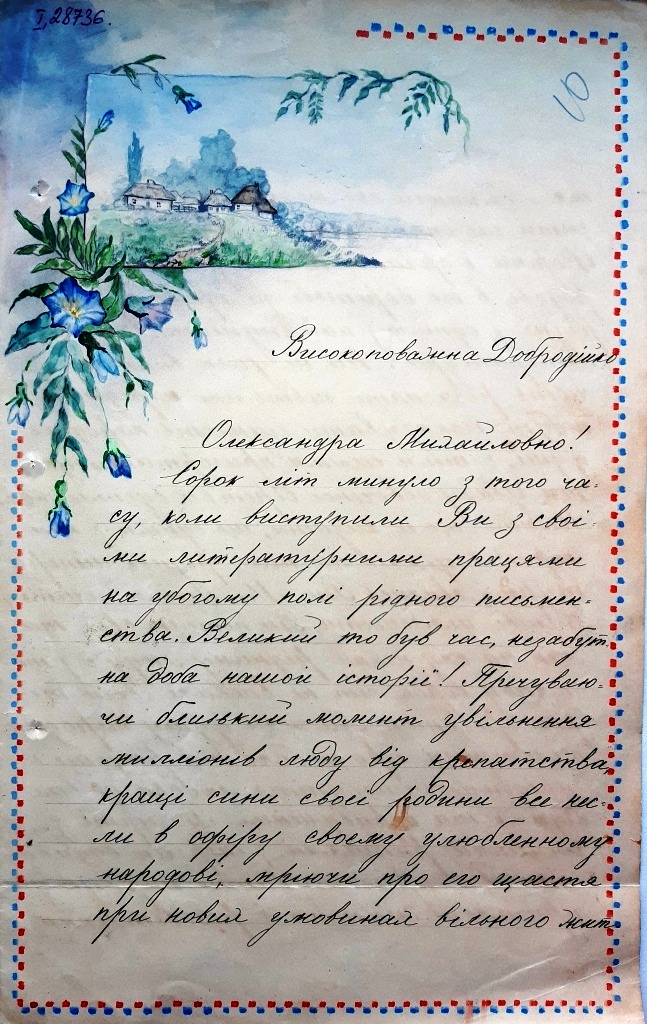 I, 28736.
10
Високоповажна Добродійко
Олександра Михайловно!
Сорок літ минуло з того ча-
су, коли виступили Ви з свої-
ми литературними працями
на убогому полі рідного письмен-
ства. Великий то був час, незабут-
на доба нашої історії! Пречуваю-
чи близький момент увільнення
миллїонів люду від крепатства,
кращі сини своєї родини все нес-
ли в офіру своєму улюбленному
народові, мріючи про его щастя
при нових умовинах вільного жит-